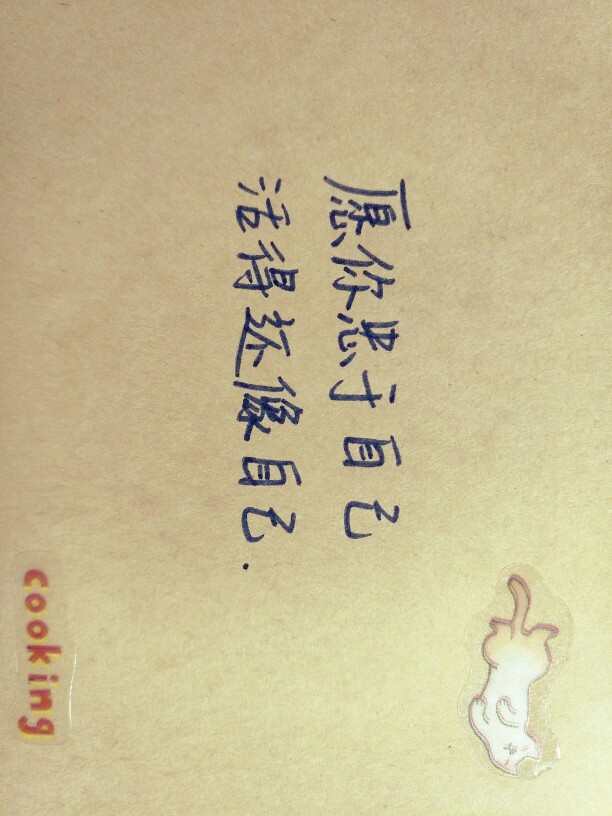 愿你忠于自己
活得还像自己.
cooking